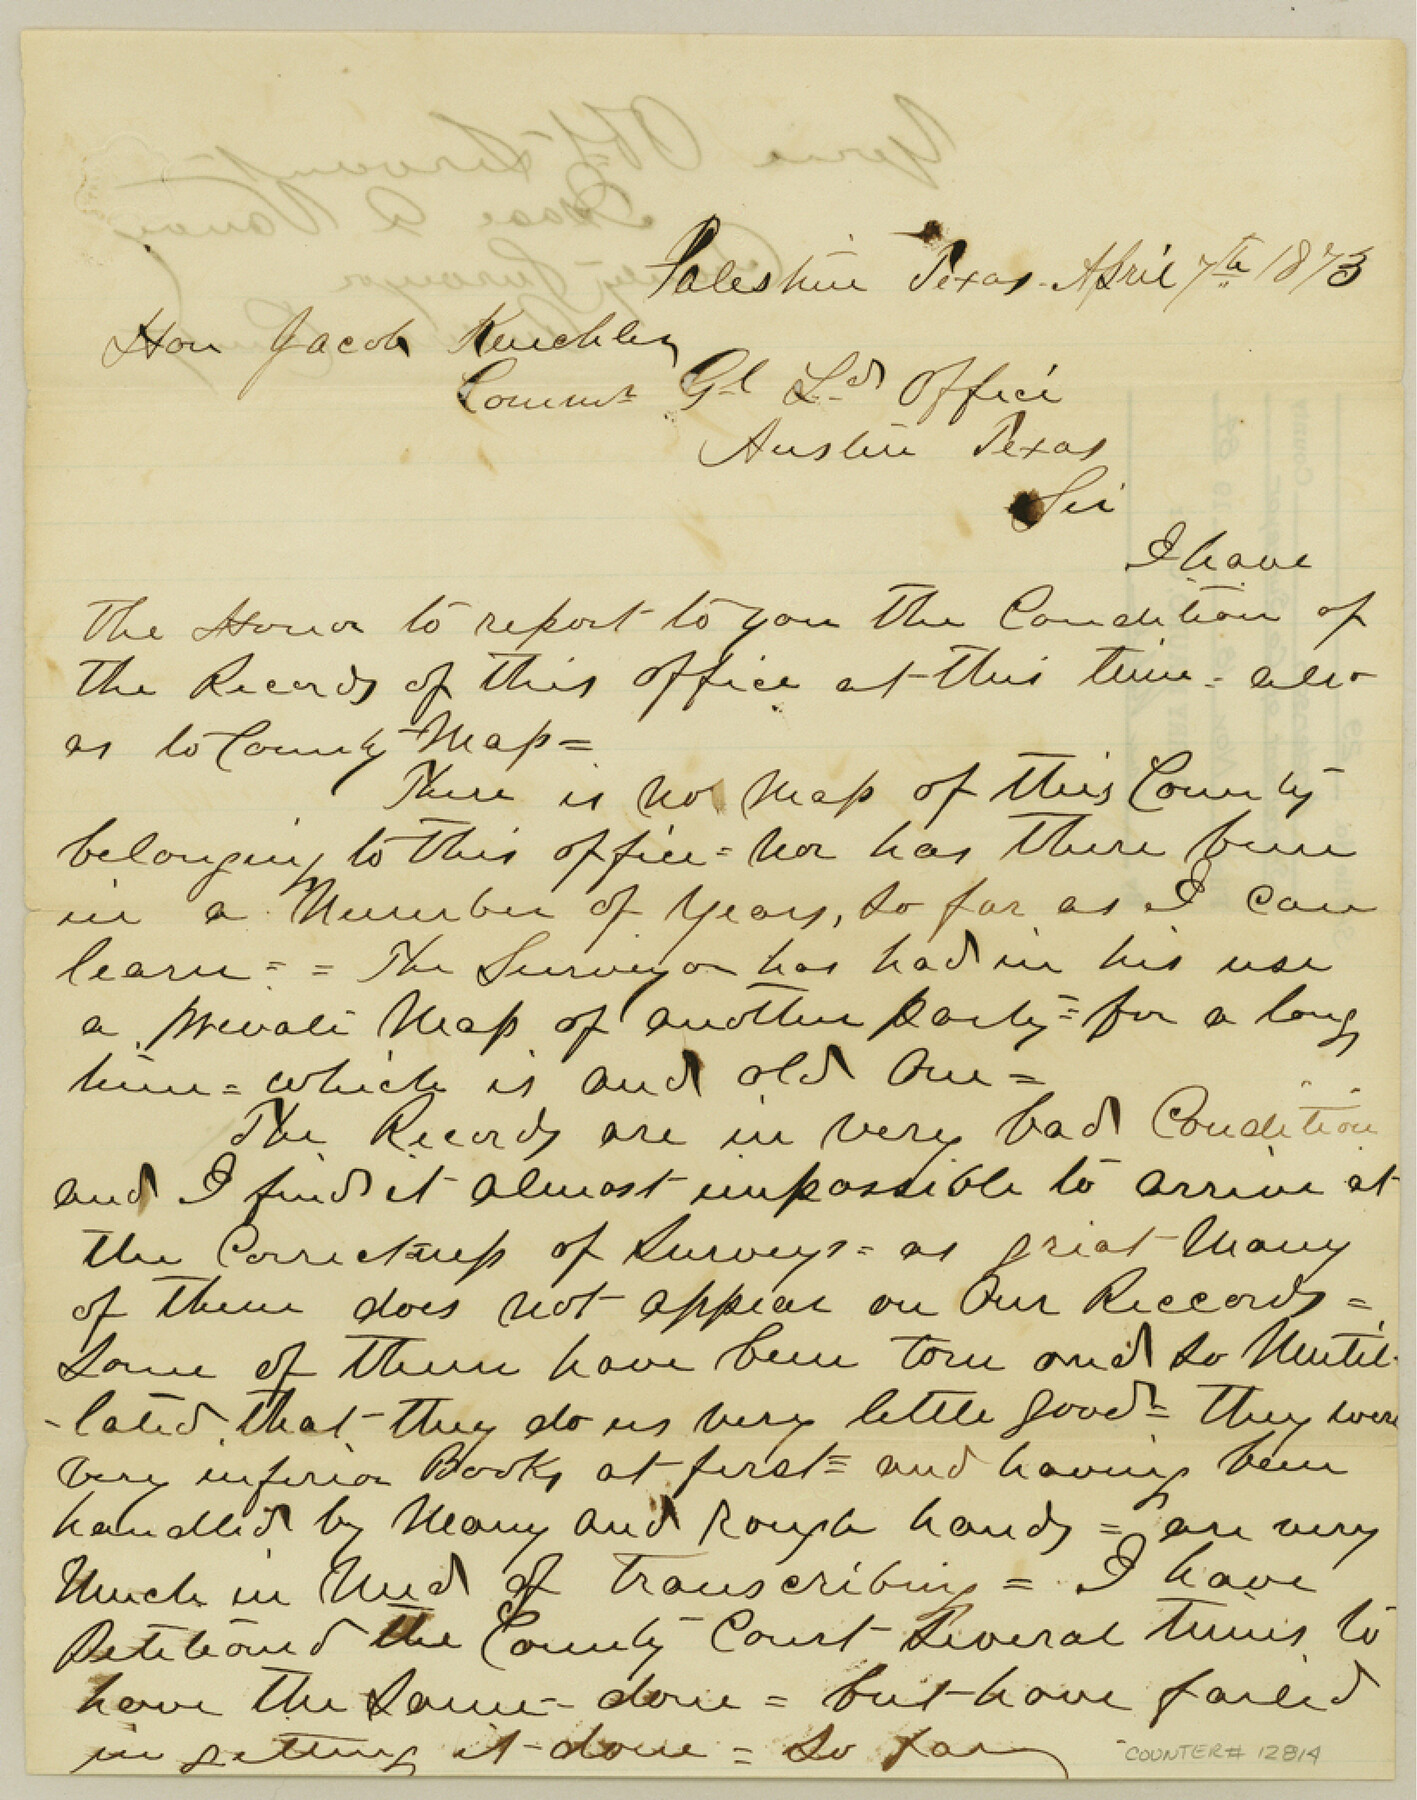 Palestine Texas. April 7th 1873
Hon Jacob Keuchler
Commr Gl Ld Office
Austin Texas
Sir
I have
the Honor to report to you the Condition of
the Records of this office at this time = also
as to County Map =
There is no Map of this County
belonging to this office = nor has there been
in a Number of Years, so far as I can
learn = = The Surveyor has had in his use
a private Map of another party = for a long
time = which is and old one =
The Records are in very bad Condition
and I find it almost impossible to arrive at
the Correct=ness of Surveys = as great Many
of them does not appear on our Reccords =
Some of them have been torn and so Mutil-
-lated, that they do us very little good = They were
very inferior Books at first = and having been
handled by Many and Rough hands = are very
Much in Need of transcribing = I have
Petitioned the County Court Several times to
have the Same - done = but have failed
in getting it done = So far
COUNTER# 12814